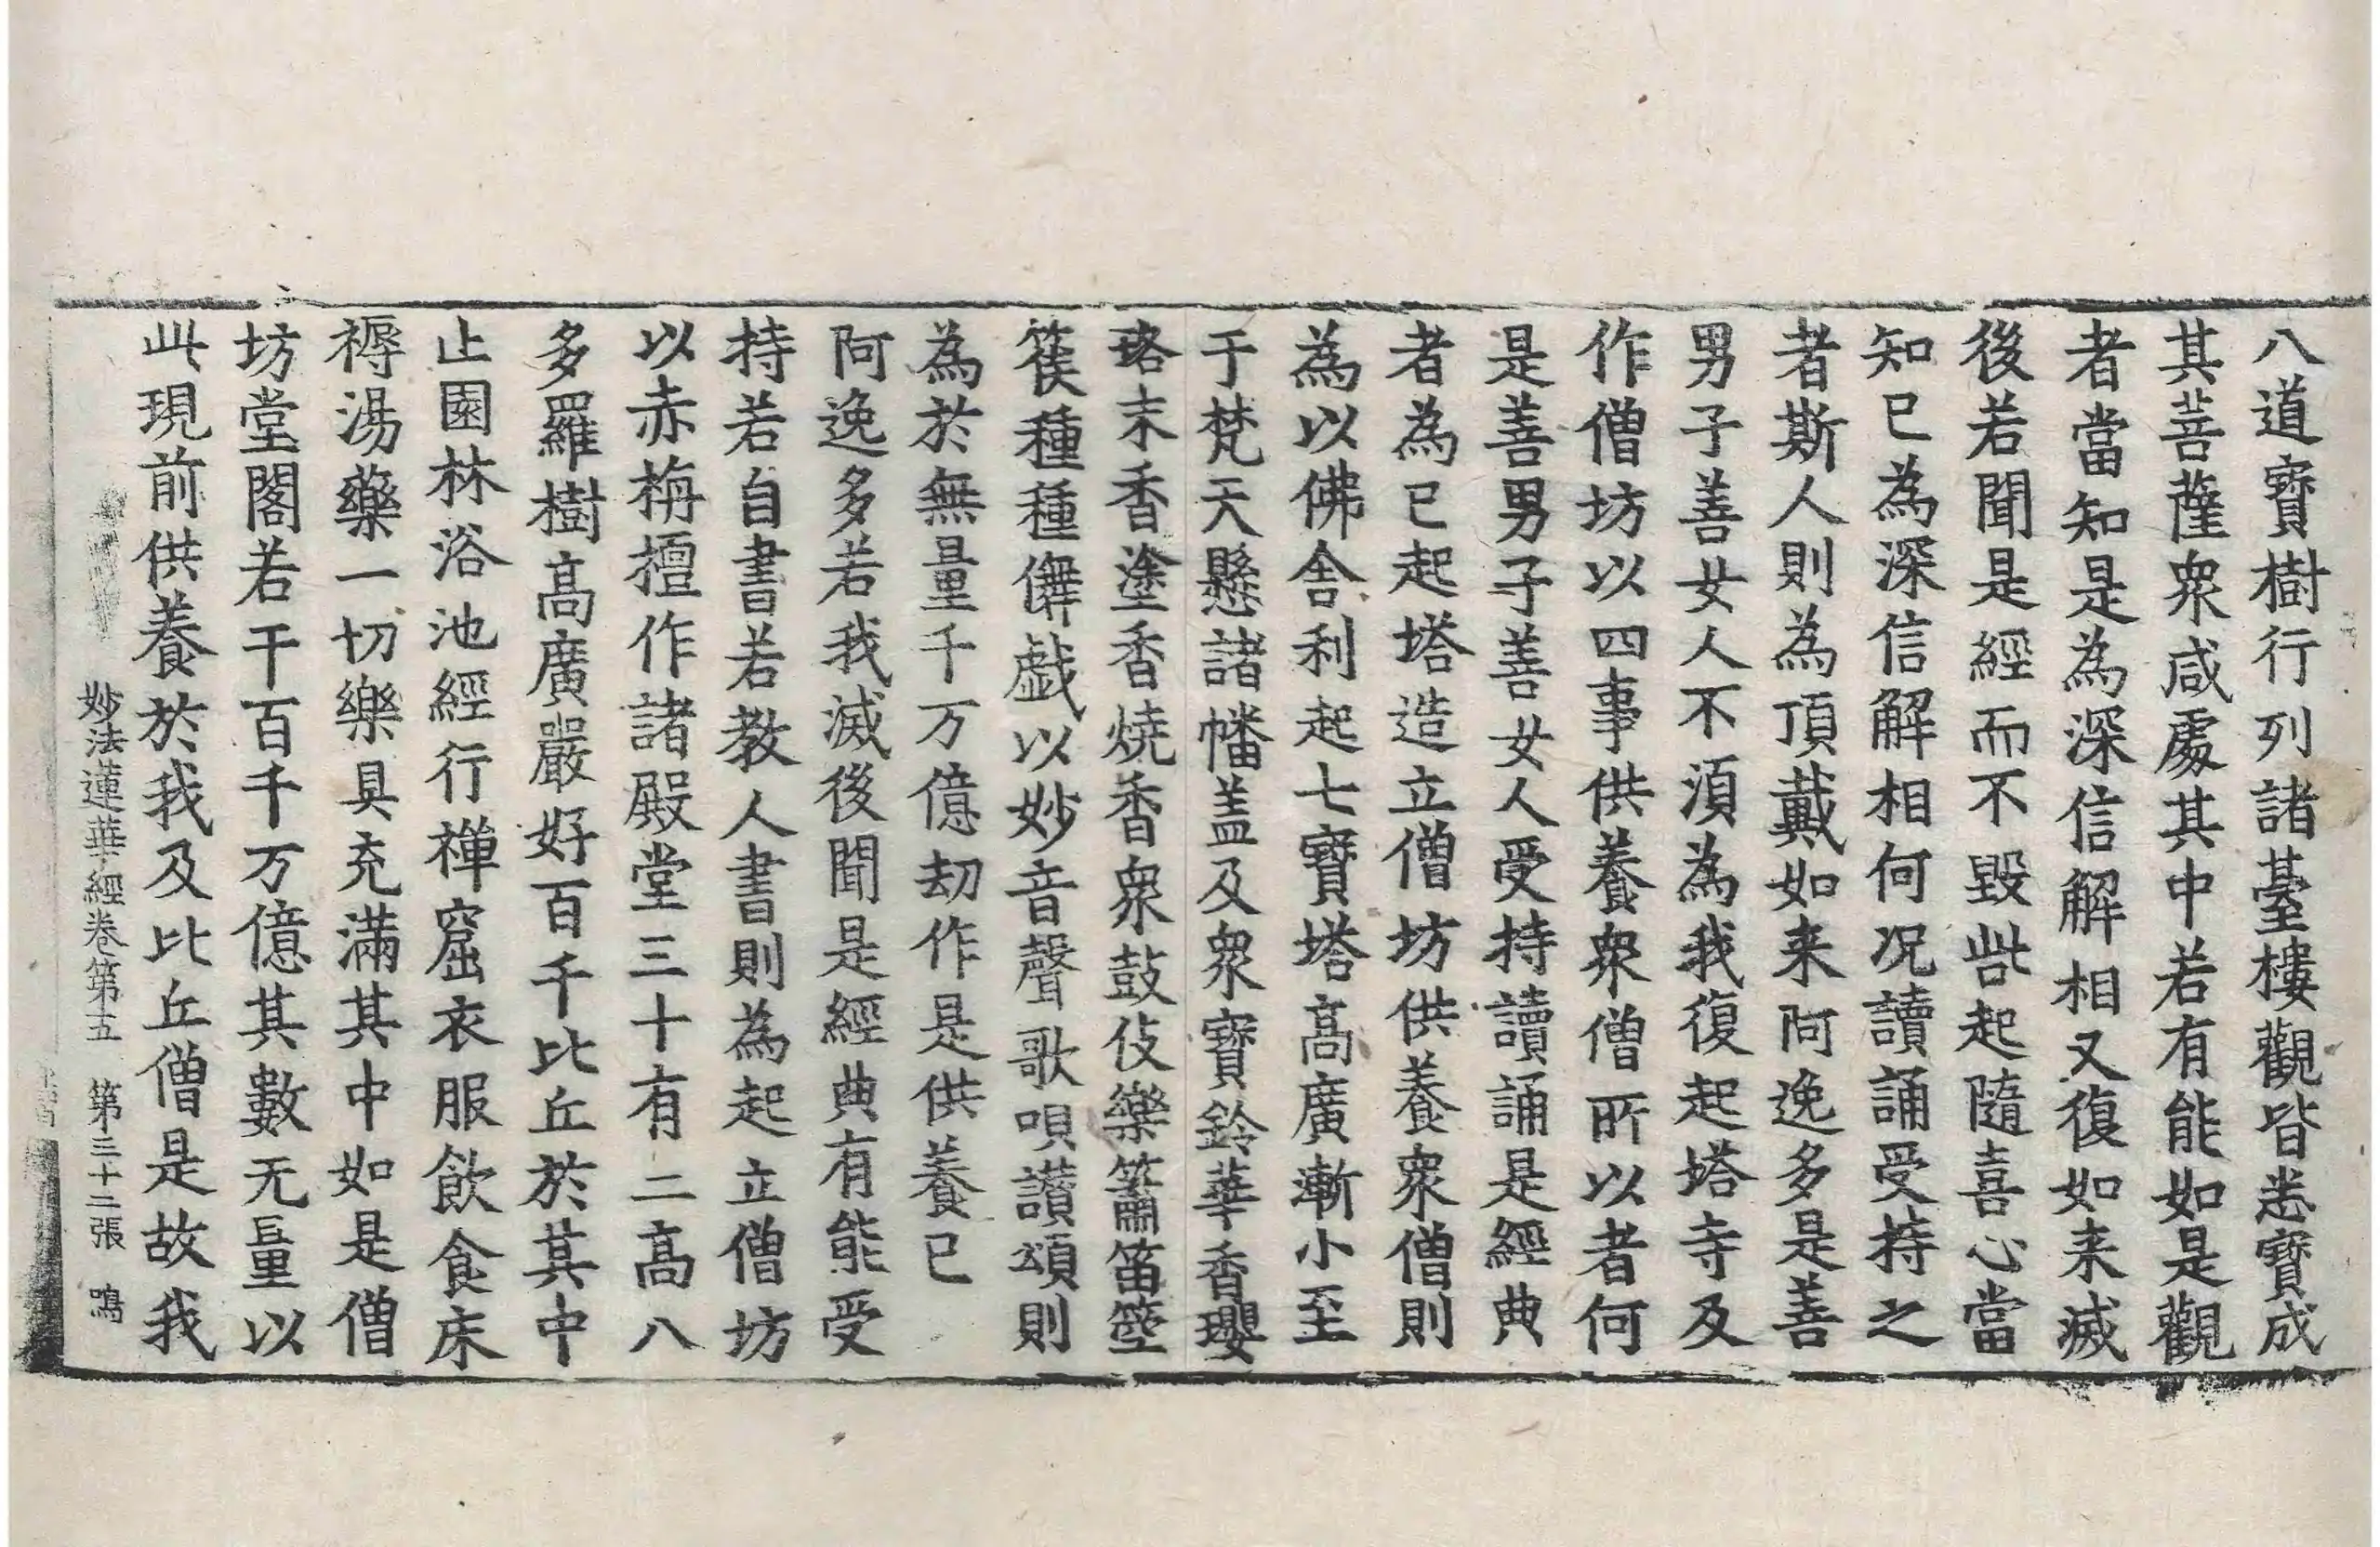 八道寶樹行列諸臺樓觀皆悉寶成
其菩薩衆咸處其中若有能如是觀
者當知是為深信解相又復如来滅
後若聞是經而不毀呰起隨喜心當
知已為深信解相何况讀誦受持之
者斯人則為頂戴如来阿逸多是善
男子善女人不湏為我復起塔寺及
作僧坊以四事供養衆僧所以者何
是善男子善女人受持讀誦是經典
者為已起塔造立僧坊供養衆僧則
為以佛舍利起七寶塔高廣漸小至
于梵天懸諸幡盖及衆寶鈴華香瓔
珞末香塗香燒香衆鼓伎樂簫笛箜
篌種種儛戯以妙音聲歌唄讃頌則
為於無量千万億劫作是供養已
阿逸多若我滅後聞是經典有能受
持若自書若教人書則為起立僧坊
以赤栴檀作諸殿堂三十有二高八
多羅樹高廣嚴好百千比丘於其中
止園林浴池經行禪窟衣服飲食床
褥湯藥一切樂具充滿其中如是僧
坊堂閣若干百千万億其數无量以
此現前供養於我及比丘僧是故我
妙法蓮華經卷第五 第三十二張 鳴